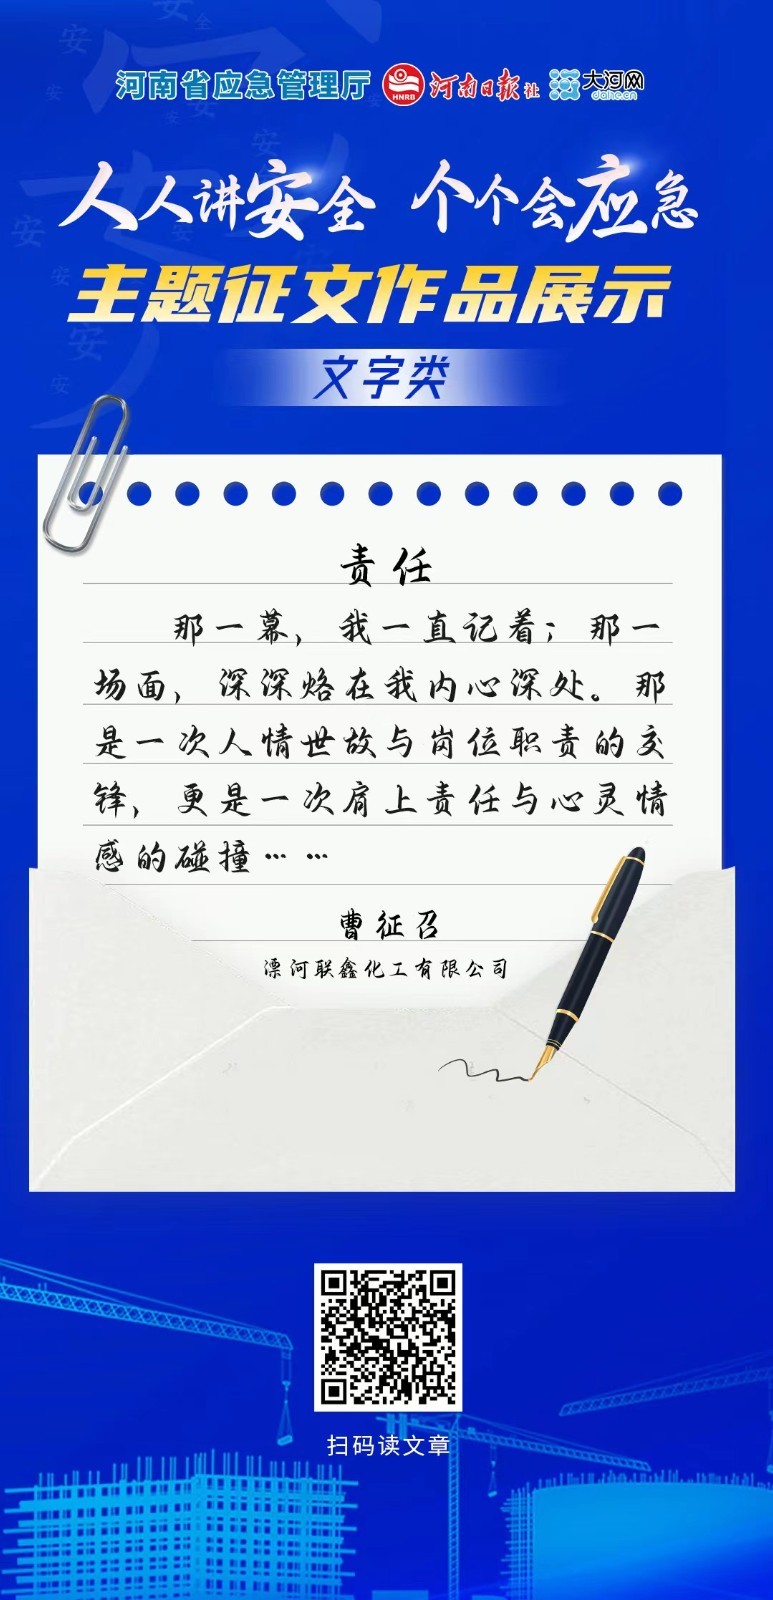 河南省应急管理厅 HNRB 河南日报社 大河网 dahe.cn
人人讲安全 个个会应急
主题征文作品展示
文字类
责任
那一幕，我一直记着；那一
场面，深深烙在我内心深处。那
是一次人情世故与岗位职责的交
锋，更是一次肩上责任与心灵情
感的碰撞……
曹征召
漂河联鑫化工有限公司
扫码读文章